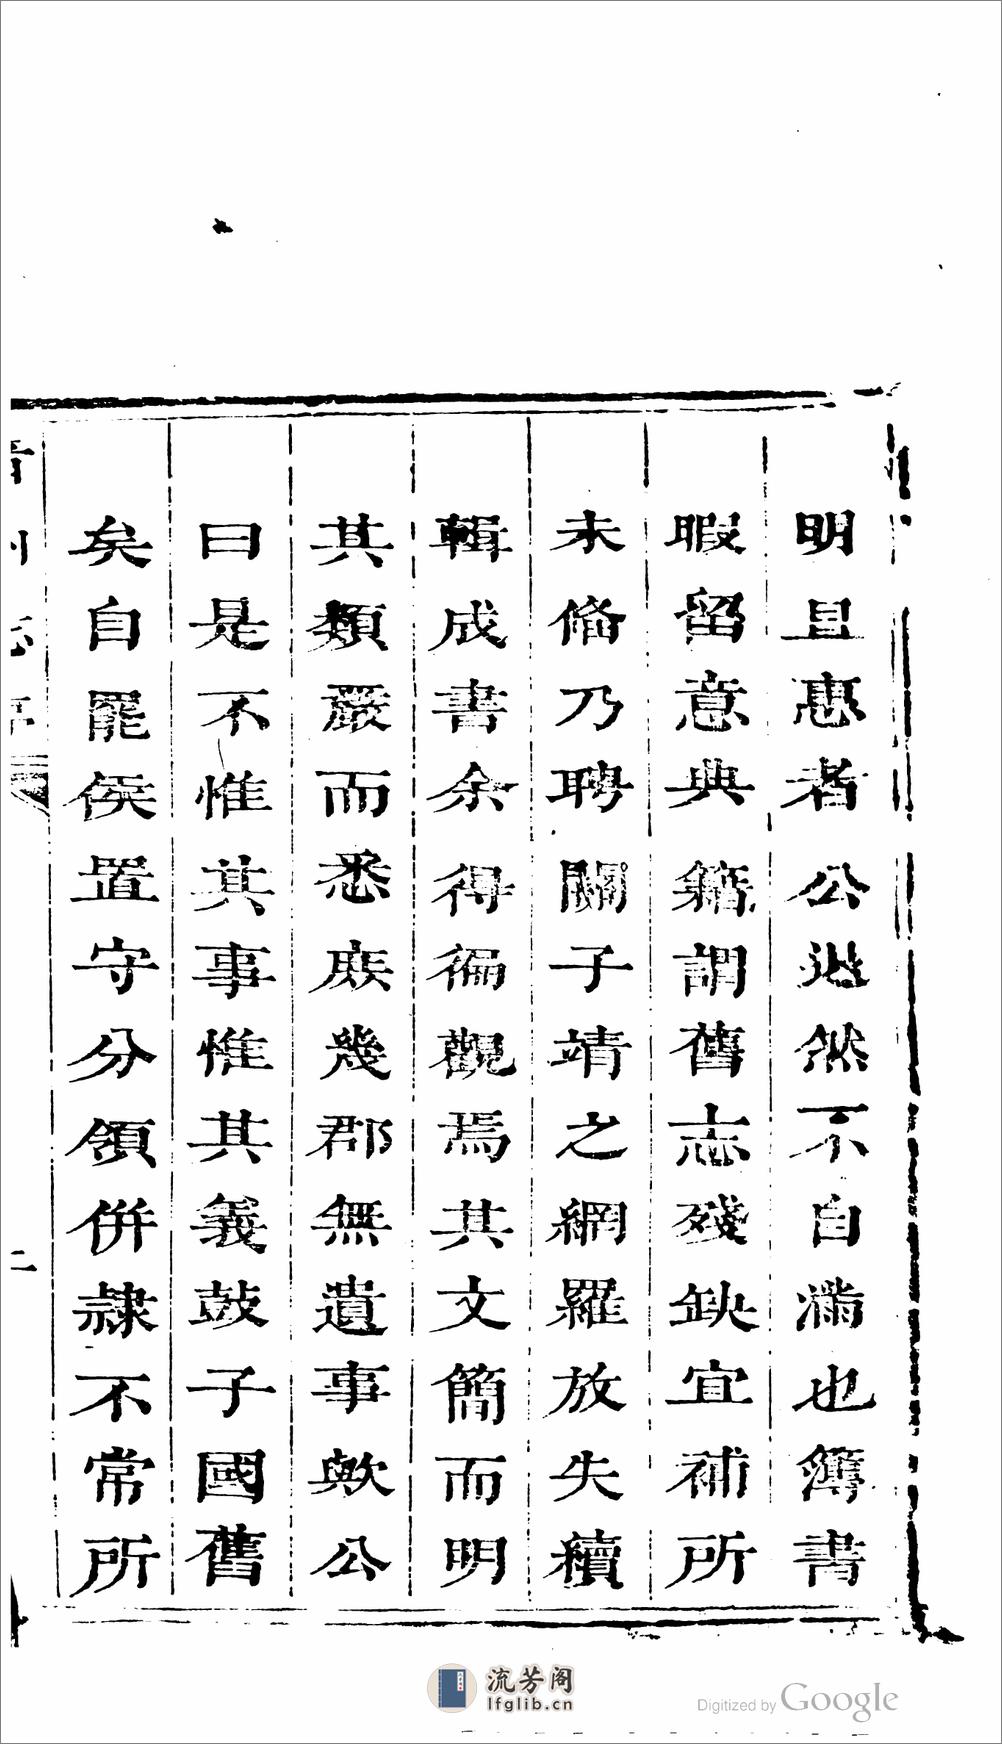 明且惠者公退然不自滿也簿書
暇留意典籍謂舊志殘缺宜補所
未偹乃聘關子靖之網羅放失續
輯成書余得徧觀焉其文簡而明
其類嚴而悉庶幾郡無遺事歟公
曰是不惟其事惟其義鼓子國舊
矣自罷侯置守分領併隸不常所
二
流芳阁
lfglib.cn
Digitized by Google